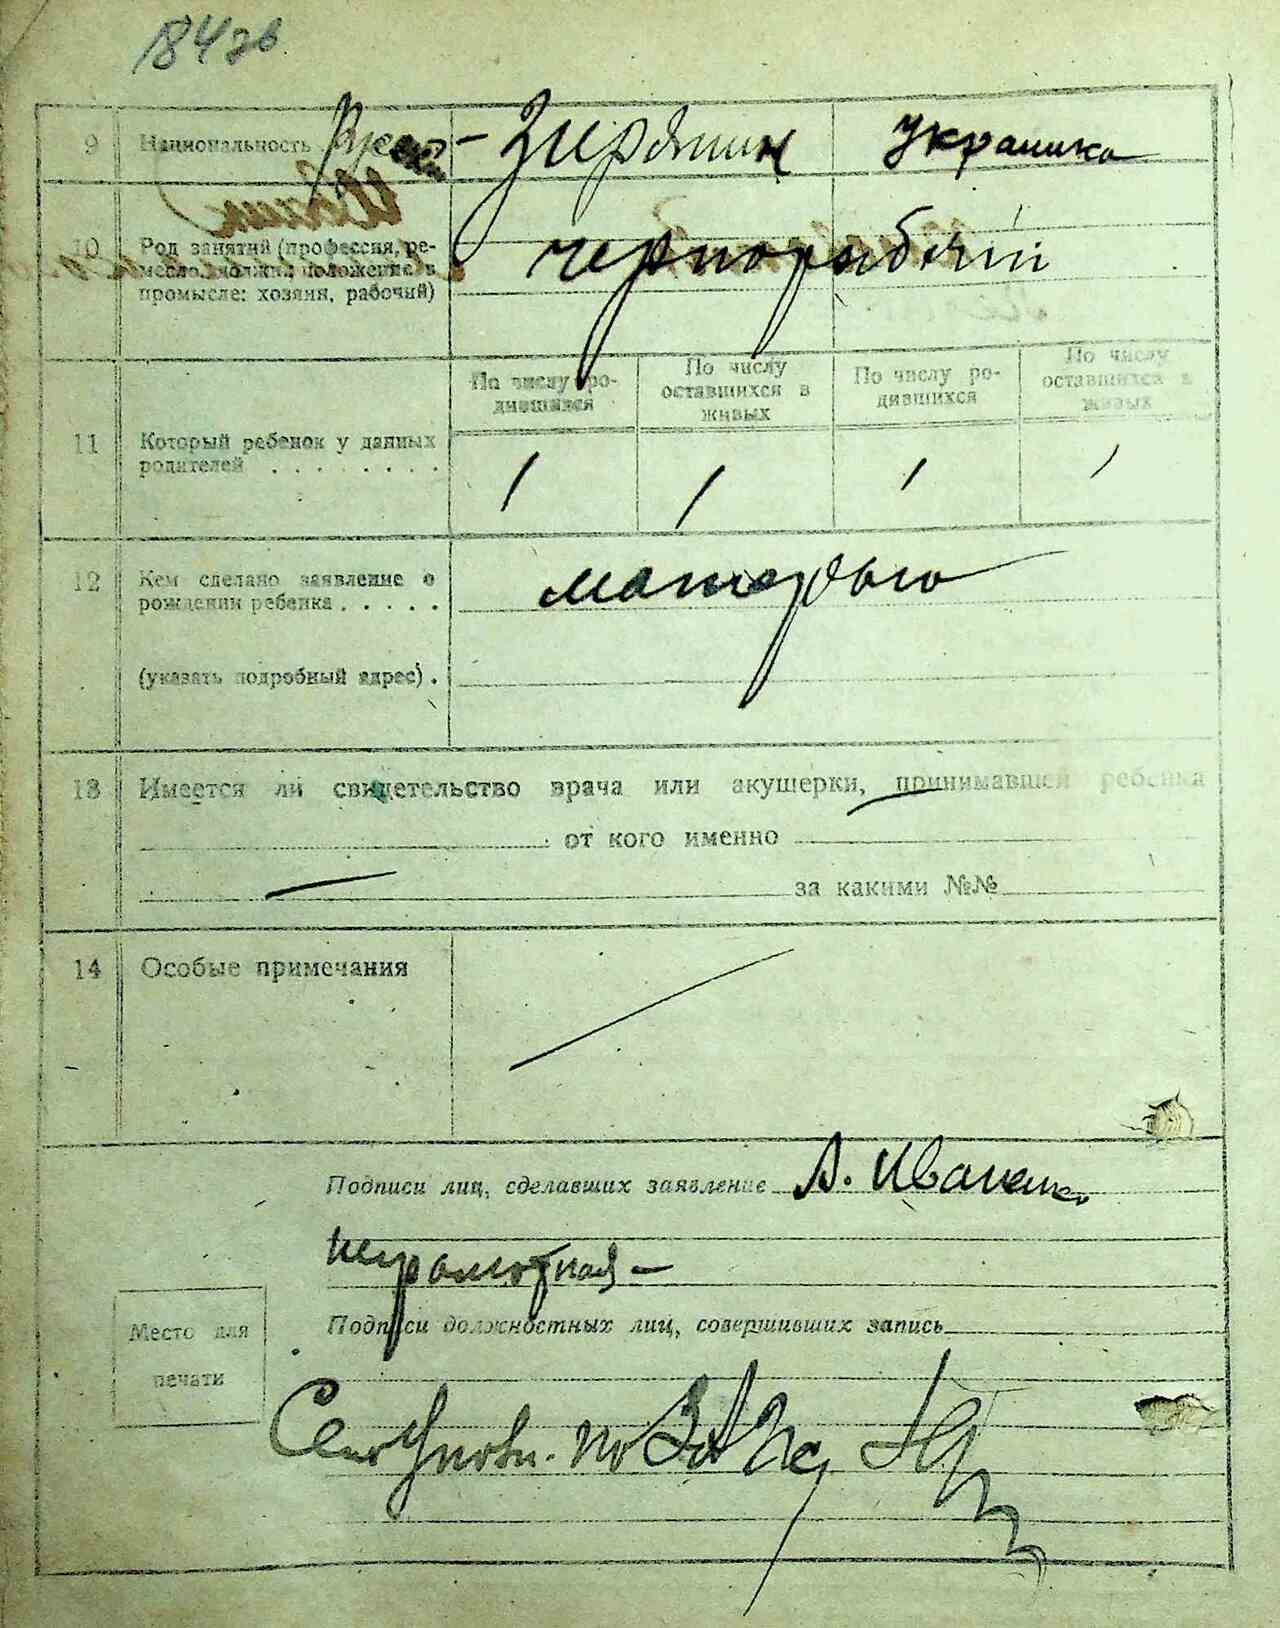 184 зв
9 Национальность Русск - Зирянин Украинка
10 Род занятий (профессия, ре-
месло, должн. положение в
промысле: хозяин, рабочий)
чернорабочий
По числу ро-
дившихся
По числу
оставшихся в
живых
По числу ро-
дившихся
По числу
оставшихся в
живых
11 Который ребенок у данных
родителей . . . . . . . .
1 1 1 1
12 Кем сделано заявление о
рождении ребенка . . . . .
матерью
(указать подробный адрес) .
13 Имеется ли свидетельство врача или акушерки, принимавшей ребенка
от кого именно
— за какими №№
14 Особые примечания
Подписи лиц, сделавших заявление А. Иваненко
неграмотная —
Подписи должностных лиц, совершивших запись
Место для
печати